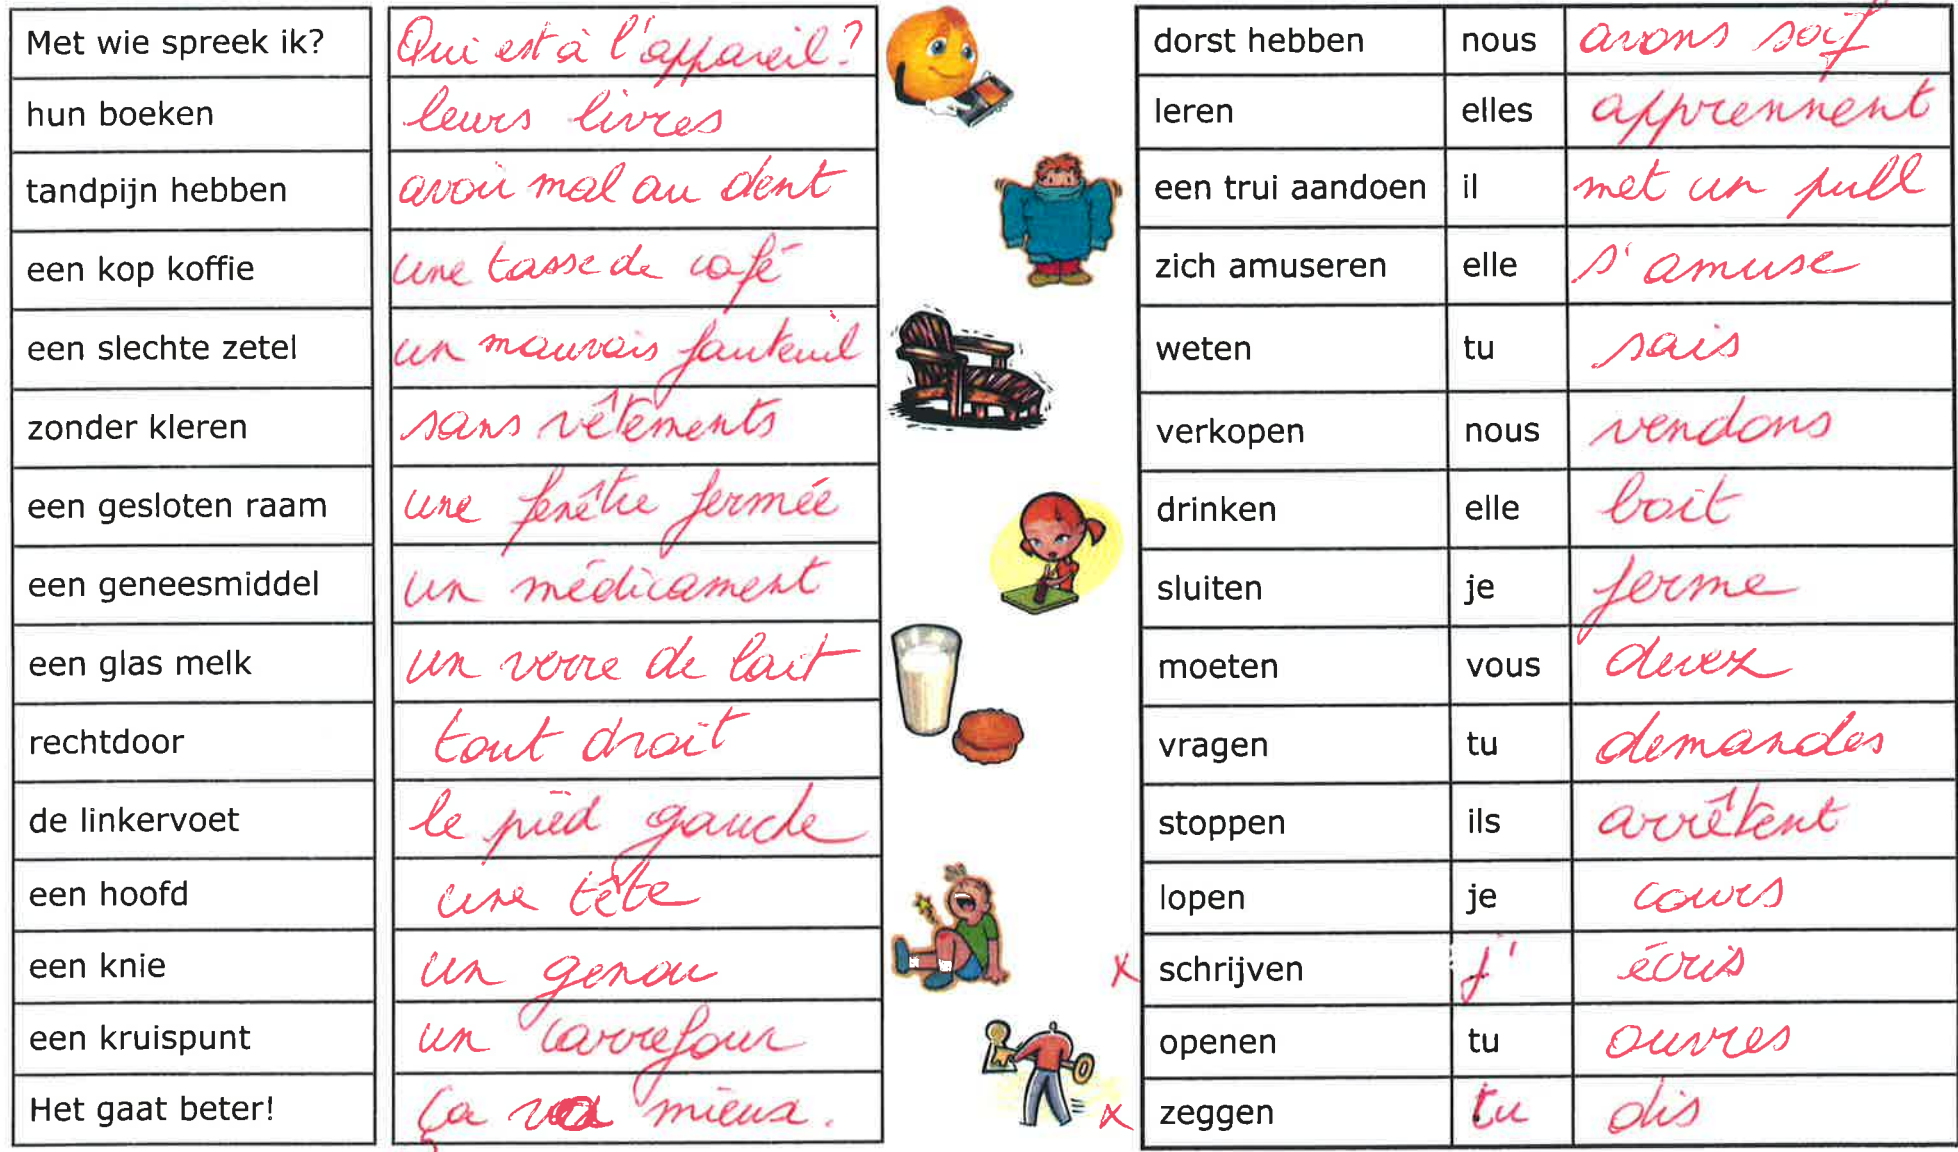 Met wie spreek ik? Qui est à l'appareil?
hun boeken leurs livres
tandpijn hebben avoir mal au dent
een kop koffie une tasse de café
een slechte zetel un mauvais fauteuil
zonder kleren sans vêtements
een gesloten raam une fenêtre fermée
een geneesmiddel un médicament
een glas melk un verre de lait
rechtdoor tout droit
de linkervoet le pied gauche
een hoofd une tête
een knie un genou
een kruispunt un carrefour
Het gaat beter! ça va mieux.
dorst hebben nous avons soif
leren elles apprennent
een trui aandoen il met un pull
zich amuseren elle s'amuse
weten tu sais
verkopen nous vendons
drinken elle boit
sluiten je ferme
moeten vous devez
vragen tu demandes
stoppen ils arrêtent
lopen je cours
x schrijven j' écris
openen tu ouvres
x zeggen tu dis